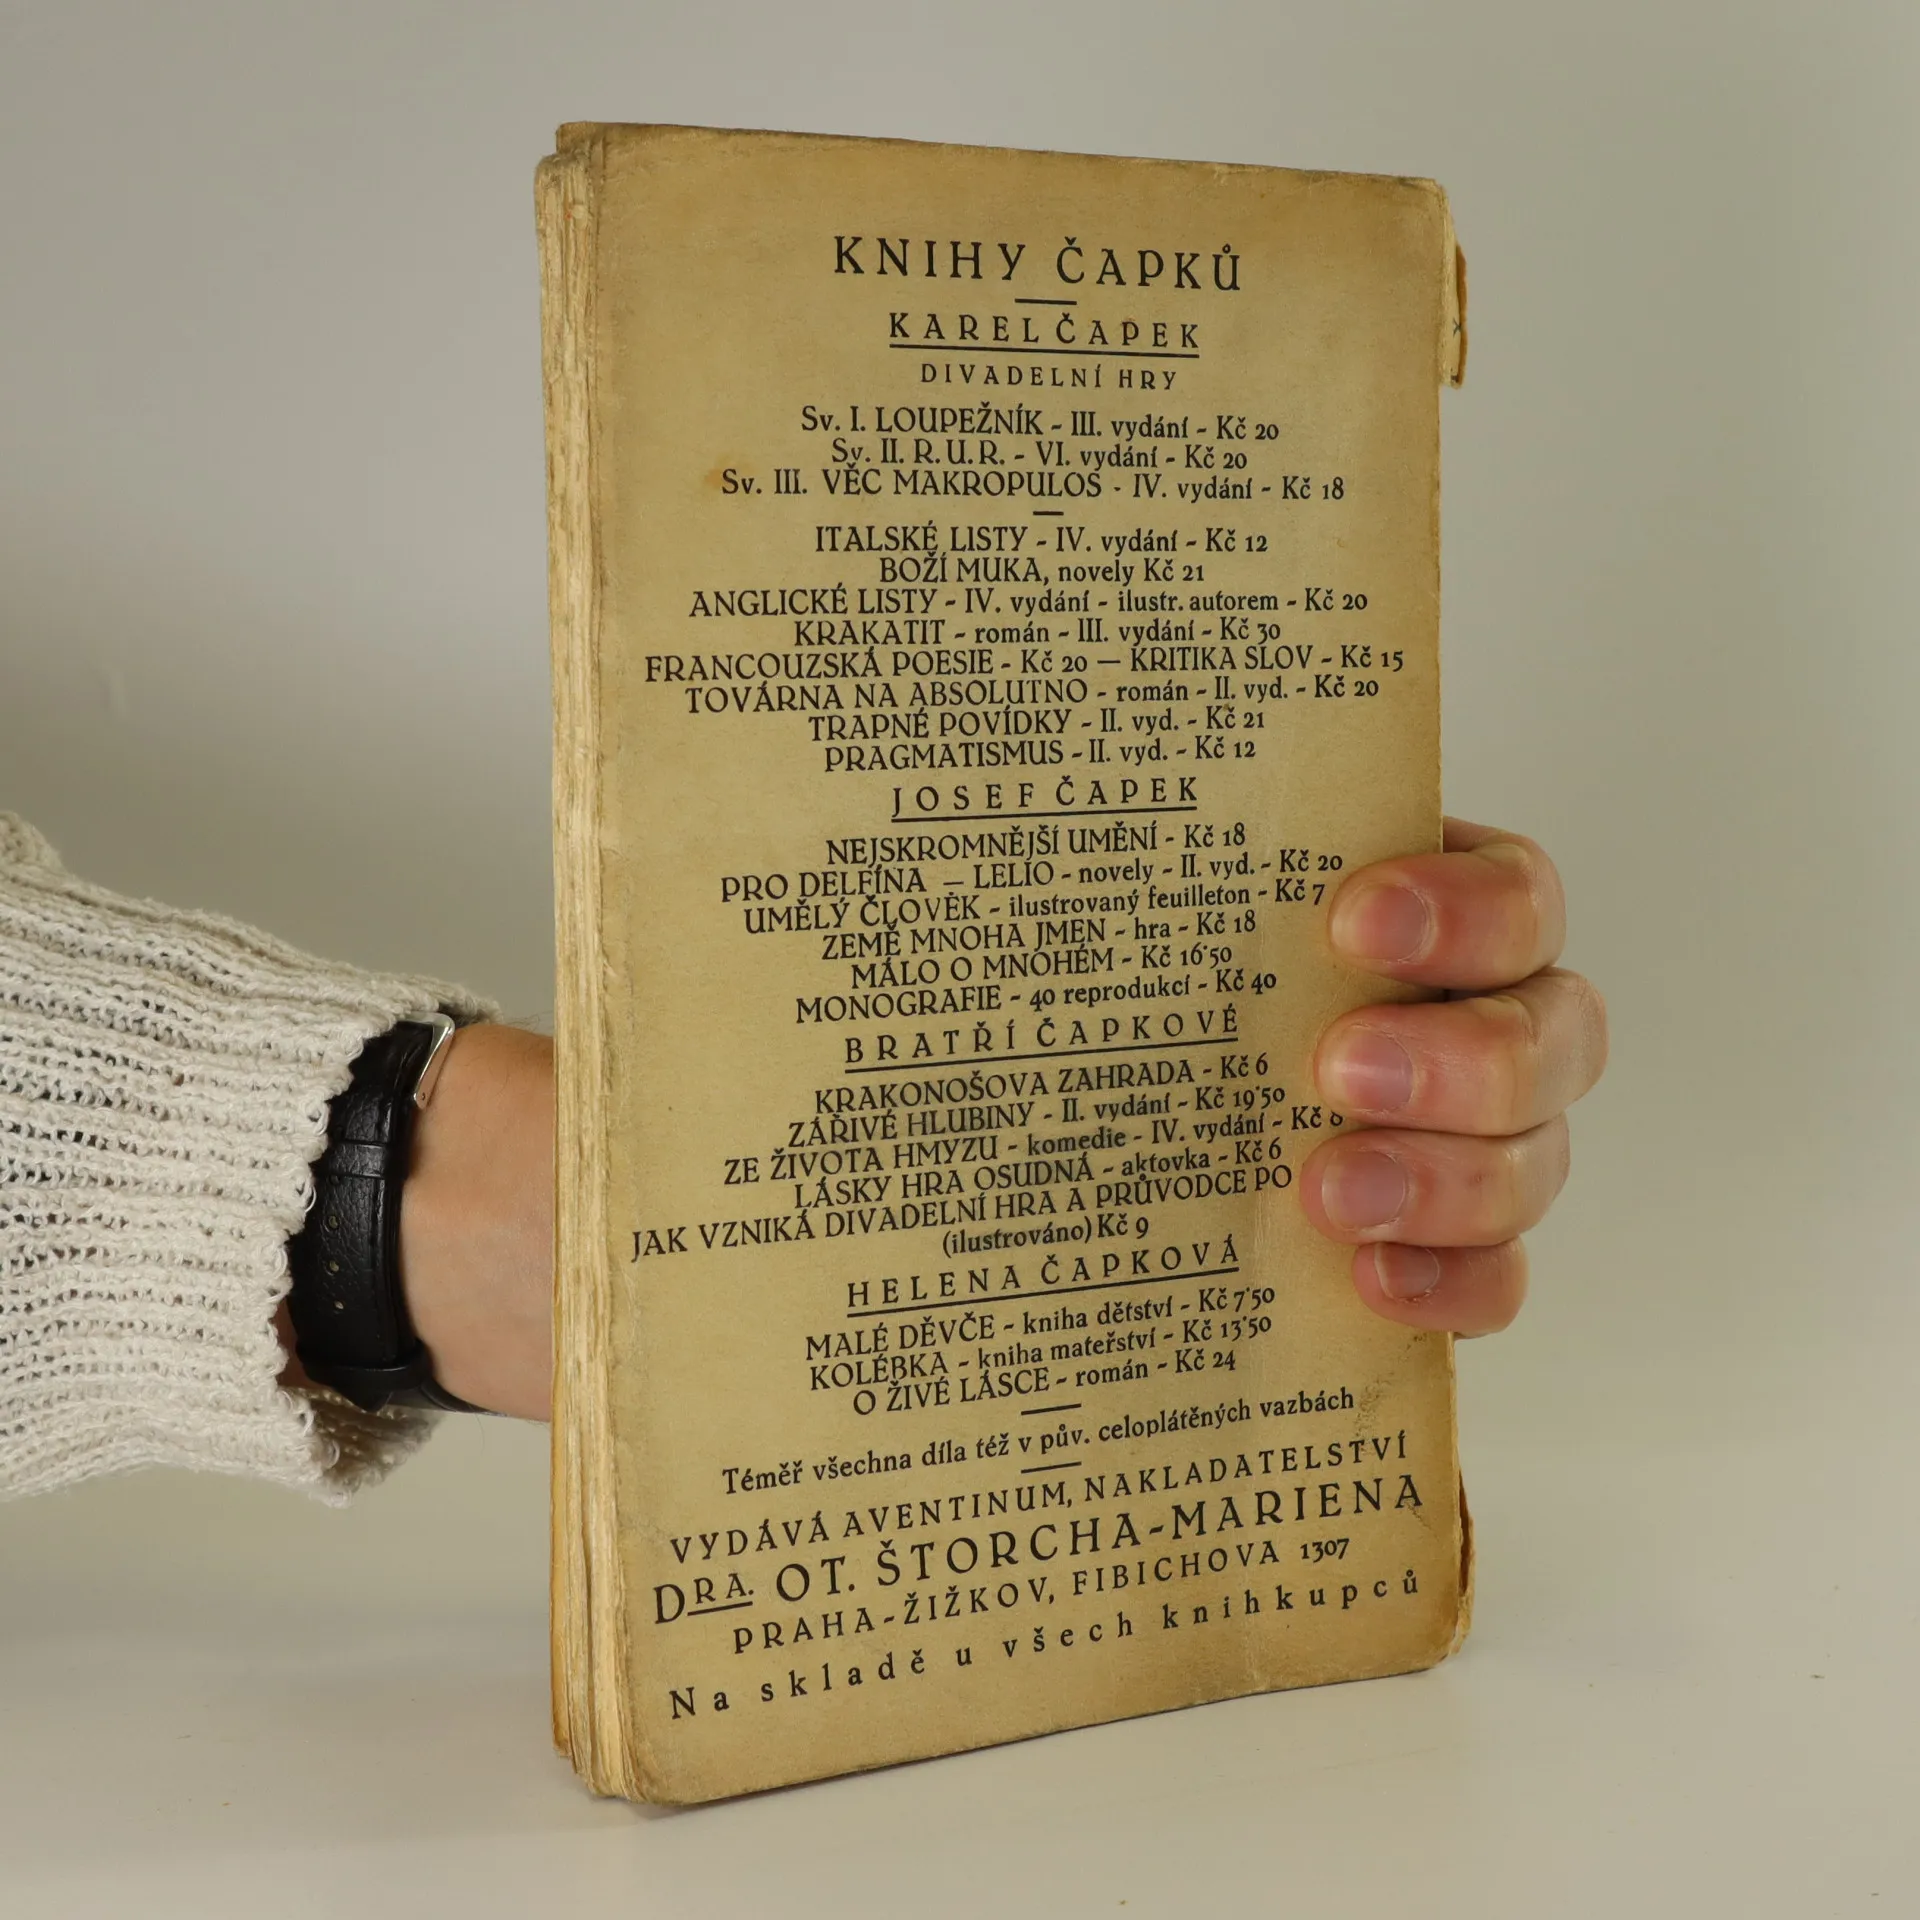 KNIHY ČAPKŮ
KAREL ČAPEK
DIVADELNÍ HRY
Sv. I. LOUPEŽNÍK - III. vydání - Kč 20
Sv. II. R. U. R. - VI. vydání - Kč 20
Sv. III. VĚC MAKROPULOS - IV. vydání - Kč 18
ITALSKÉ LISTY - IV. vydání - Kč 12
BOŽÍ MUKA, novely Kč 21
ANGLICKÉ LISTY - IV. vydání - ilustr. autorem - Kč 20
KRAKATIT - román - III. vydání - Kč 30
FRANCOUZSKÁ POESIE - Kč 20 — KRITIKA SLOV - Kč 15
TOVÁRNA NA ABSOLUTNO - román - II. vyd. - Kč 20
TRAPNÉ POVÍDKY - II. vyd. - Kč 21
PRAGMATISMUS - II. vyd. - Kč 12
JOSEF ČAPEK
NEJSKROMNĚJŠÍ UMĚNÍ - Kč 18
PRO DELFÍNA – LELIO - novely - II. vyd. - Kč 20
UMĚLÝ ČLOVĚK - ilustrovaný feuilleton - Kč 7
ZEMĚ MNOHA JMEN - hra - Kč 18
MÁLO O MNOHÉM - Kč 16·50
MONOGRAFIE - 40 reprodukcí - Kč 40
BRATŘÍ ČAPKOVÉ
KRAKONOŠOVA ZAHRADA - Kč 6
ZÁŘIVÉ HLUBINY - II. vydání - Kč 19·50
ZE ŽIVOTA HMYZU - komedie - IV. vydání - Kč
LÁSKY HRA OSUDNÁ - aktovka - Kč 6
JAK VZNIKÁ DIVADELNÍ HRA A PRŮVODCE PO
(ilustrováno) Kč 9
HELENA ČAPKOVÁ
MALÉ DĚVČE - kniha dětství - Kč 7·50
KOLÉBKA - kniha mateřství - Kč 13·50
O ŽIVÉ LÁSCE - román - Kč 24
Téměř všechna díla též v pův. celoplátěných vazbách
VYDÁVÁ AVENTINUM, NAKLADATELSTVÍ
DRA. OT. ŠTORCHA-MARIENA
PRAHA-ŽIŽKOV, FIBICHOVA 1307
Na skladě u všech knihkupců